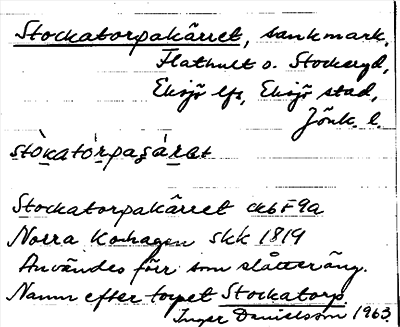 Stockatorpakärret, sankmark,
Flathult o. Stockeryd,
Eksjö lfs, Eksjö stad,
Jönk. l.
Stockatorpakärret ekbl 9a
Norra Kohagen skk 1819
Användes förr som slåtteräng.
Namn efter torpet Stockatorp.
Inger Danielsson 1963.